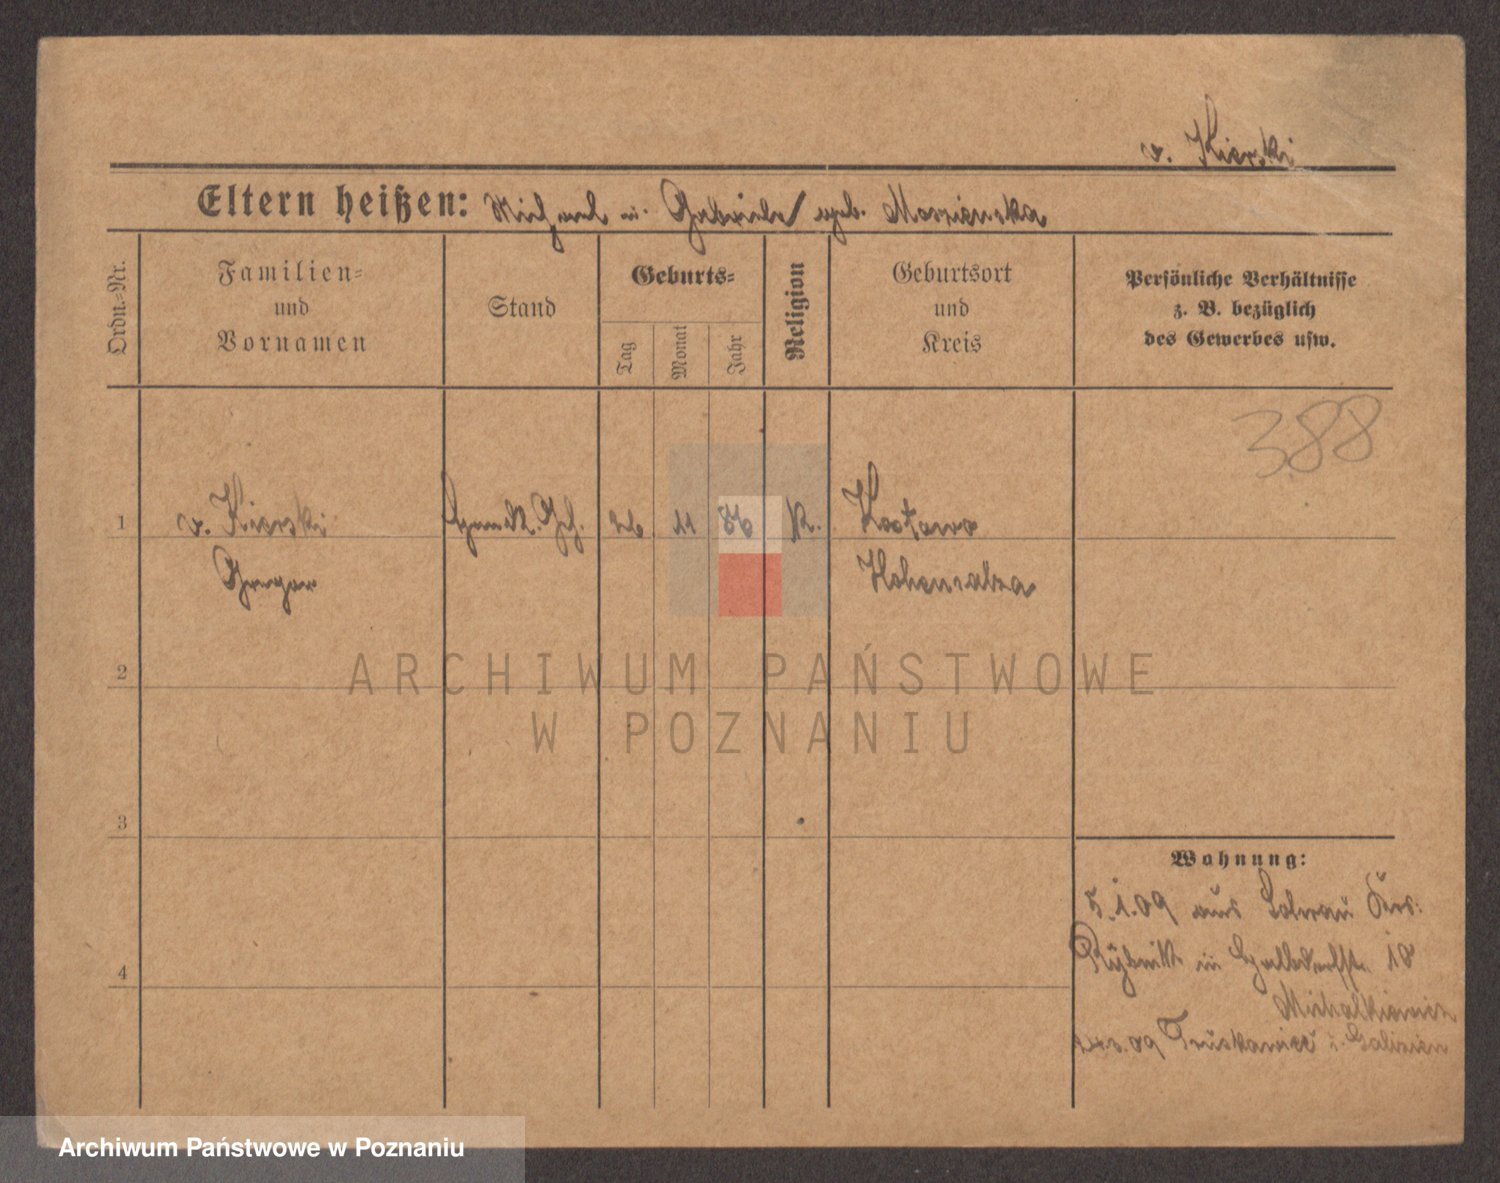 v. Kierski
Eltern heißen: Michael u. Gabriele geb.
Ordn.-Nr.
Familien-
und
Vornamen
Stand
Geburts-
Tag
Monat
Jahr
Religion
Geburtsort
und
Kreis
Persönliche Verhältnisse
z. B. bezüglich
des Gewerbes usw.
388
1
v. Kierski
11
86
k.
Gregor
Hohensalza
2
ARCHIWUM PAŃSTWOWE
W POZNANIU
3
Wohnung:
5.1.09 aus Sohrau Krs:
4
Rybnik in 18
Michalkiewicz
09 Truskawiec i. Galizien
Archiwum Państwowe w Poznaniu